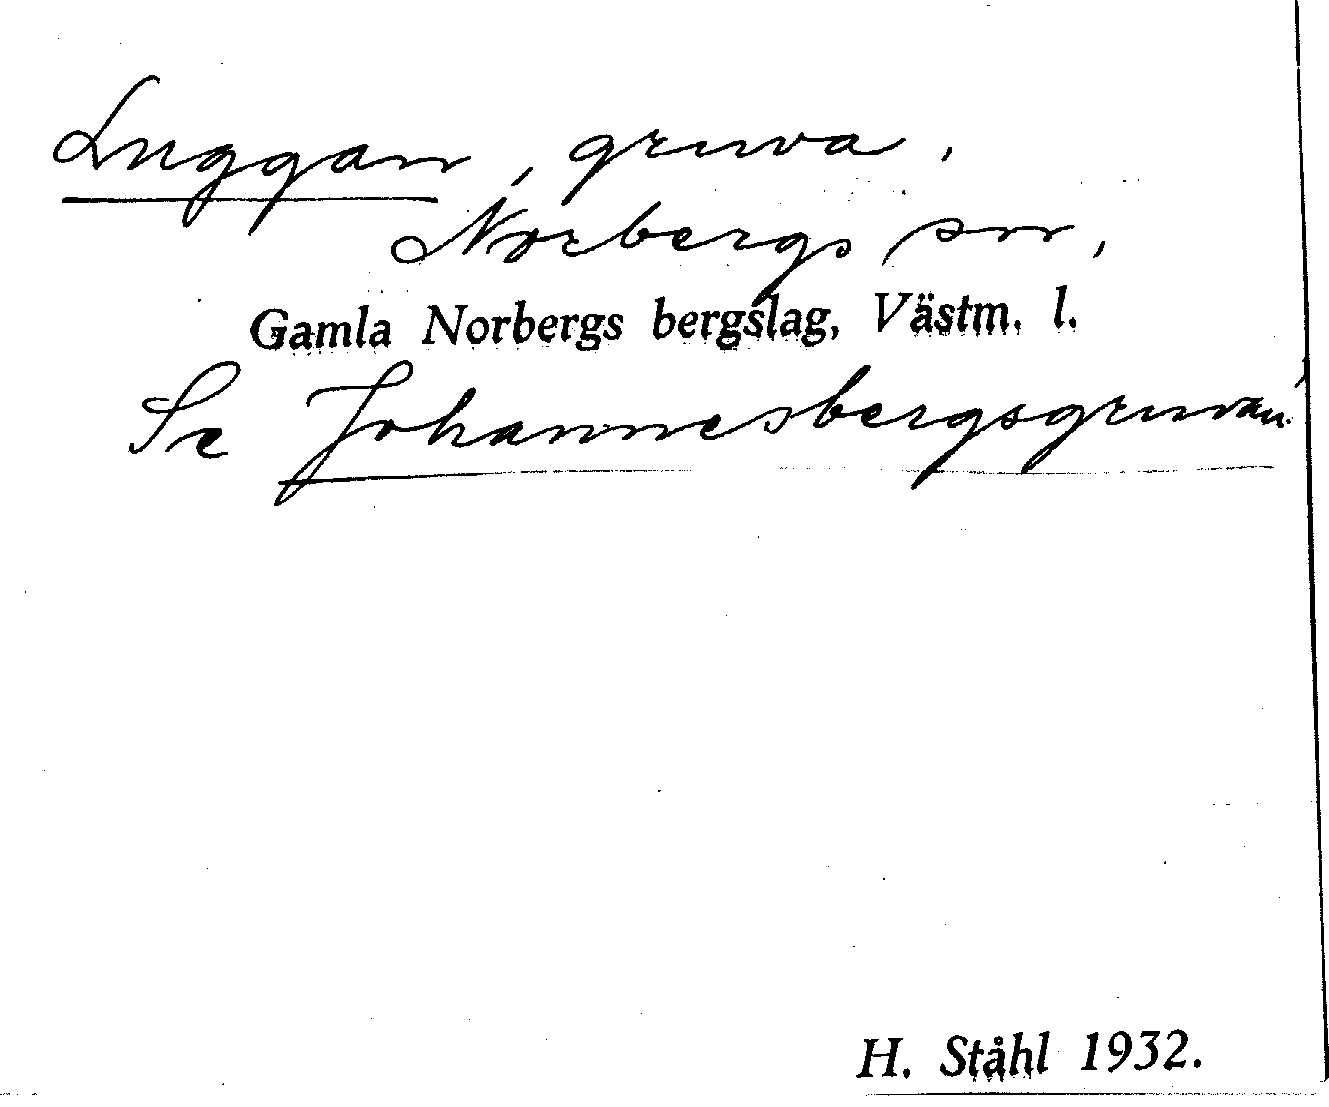 Luggan, gruva,
Norbergs sn,
Gamla Norbergs bergslag, Västm. l.
Se Johannesbergsgruvan.
H. Ståhl 1932.